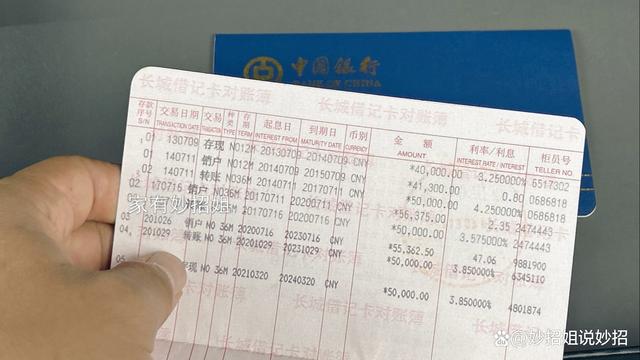 中国银行
BANK OF CHINA
长城借记卡对账簿
长城借记卡对账簿
长城借记卡
存款序号 交易日期 交易 种类 存期 起息日 到期日 币别 金额 利率/利息 柜员号
S/N TRANSACTION DATE TYPE TERM INTEREST FROM MATURITY DATE CURRENCY AMOUNT INTEREST RATE / INTEREST TELLER NO.
01 130709 存现 NO12M 20130709 20140709 CNY *40,000.00 3.250000% 6517302
01 140711 销户 NO12M 20140709 20150709 CNY *41,300.00 0.80 0686818
02 140711 转账 NO36M 20140711 20170711 CNY *50,000.00 4.250000% 0686818
02 170716 销户 20170711 CNY *56,375.00 2.35 2474443
20170716 20200716 CNY *50,000.00 3.575000% 2474443
03 201026 销户 NO 36M 20200716 20230716 CNY *55,362.50 47.06 9881900
04 201029 转账 NO 36M 20201029 20231029 CNY *50,000.00 3.850000% 6345110
05 存现 NO 36M 20210320 20240320 CNY *50,000.00 3.850000% 4801874
家有妙招姐
长城借记卡对账簿
头条 @妙招姐说妙招